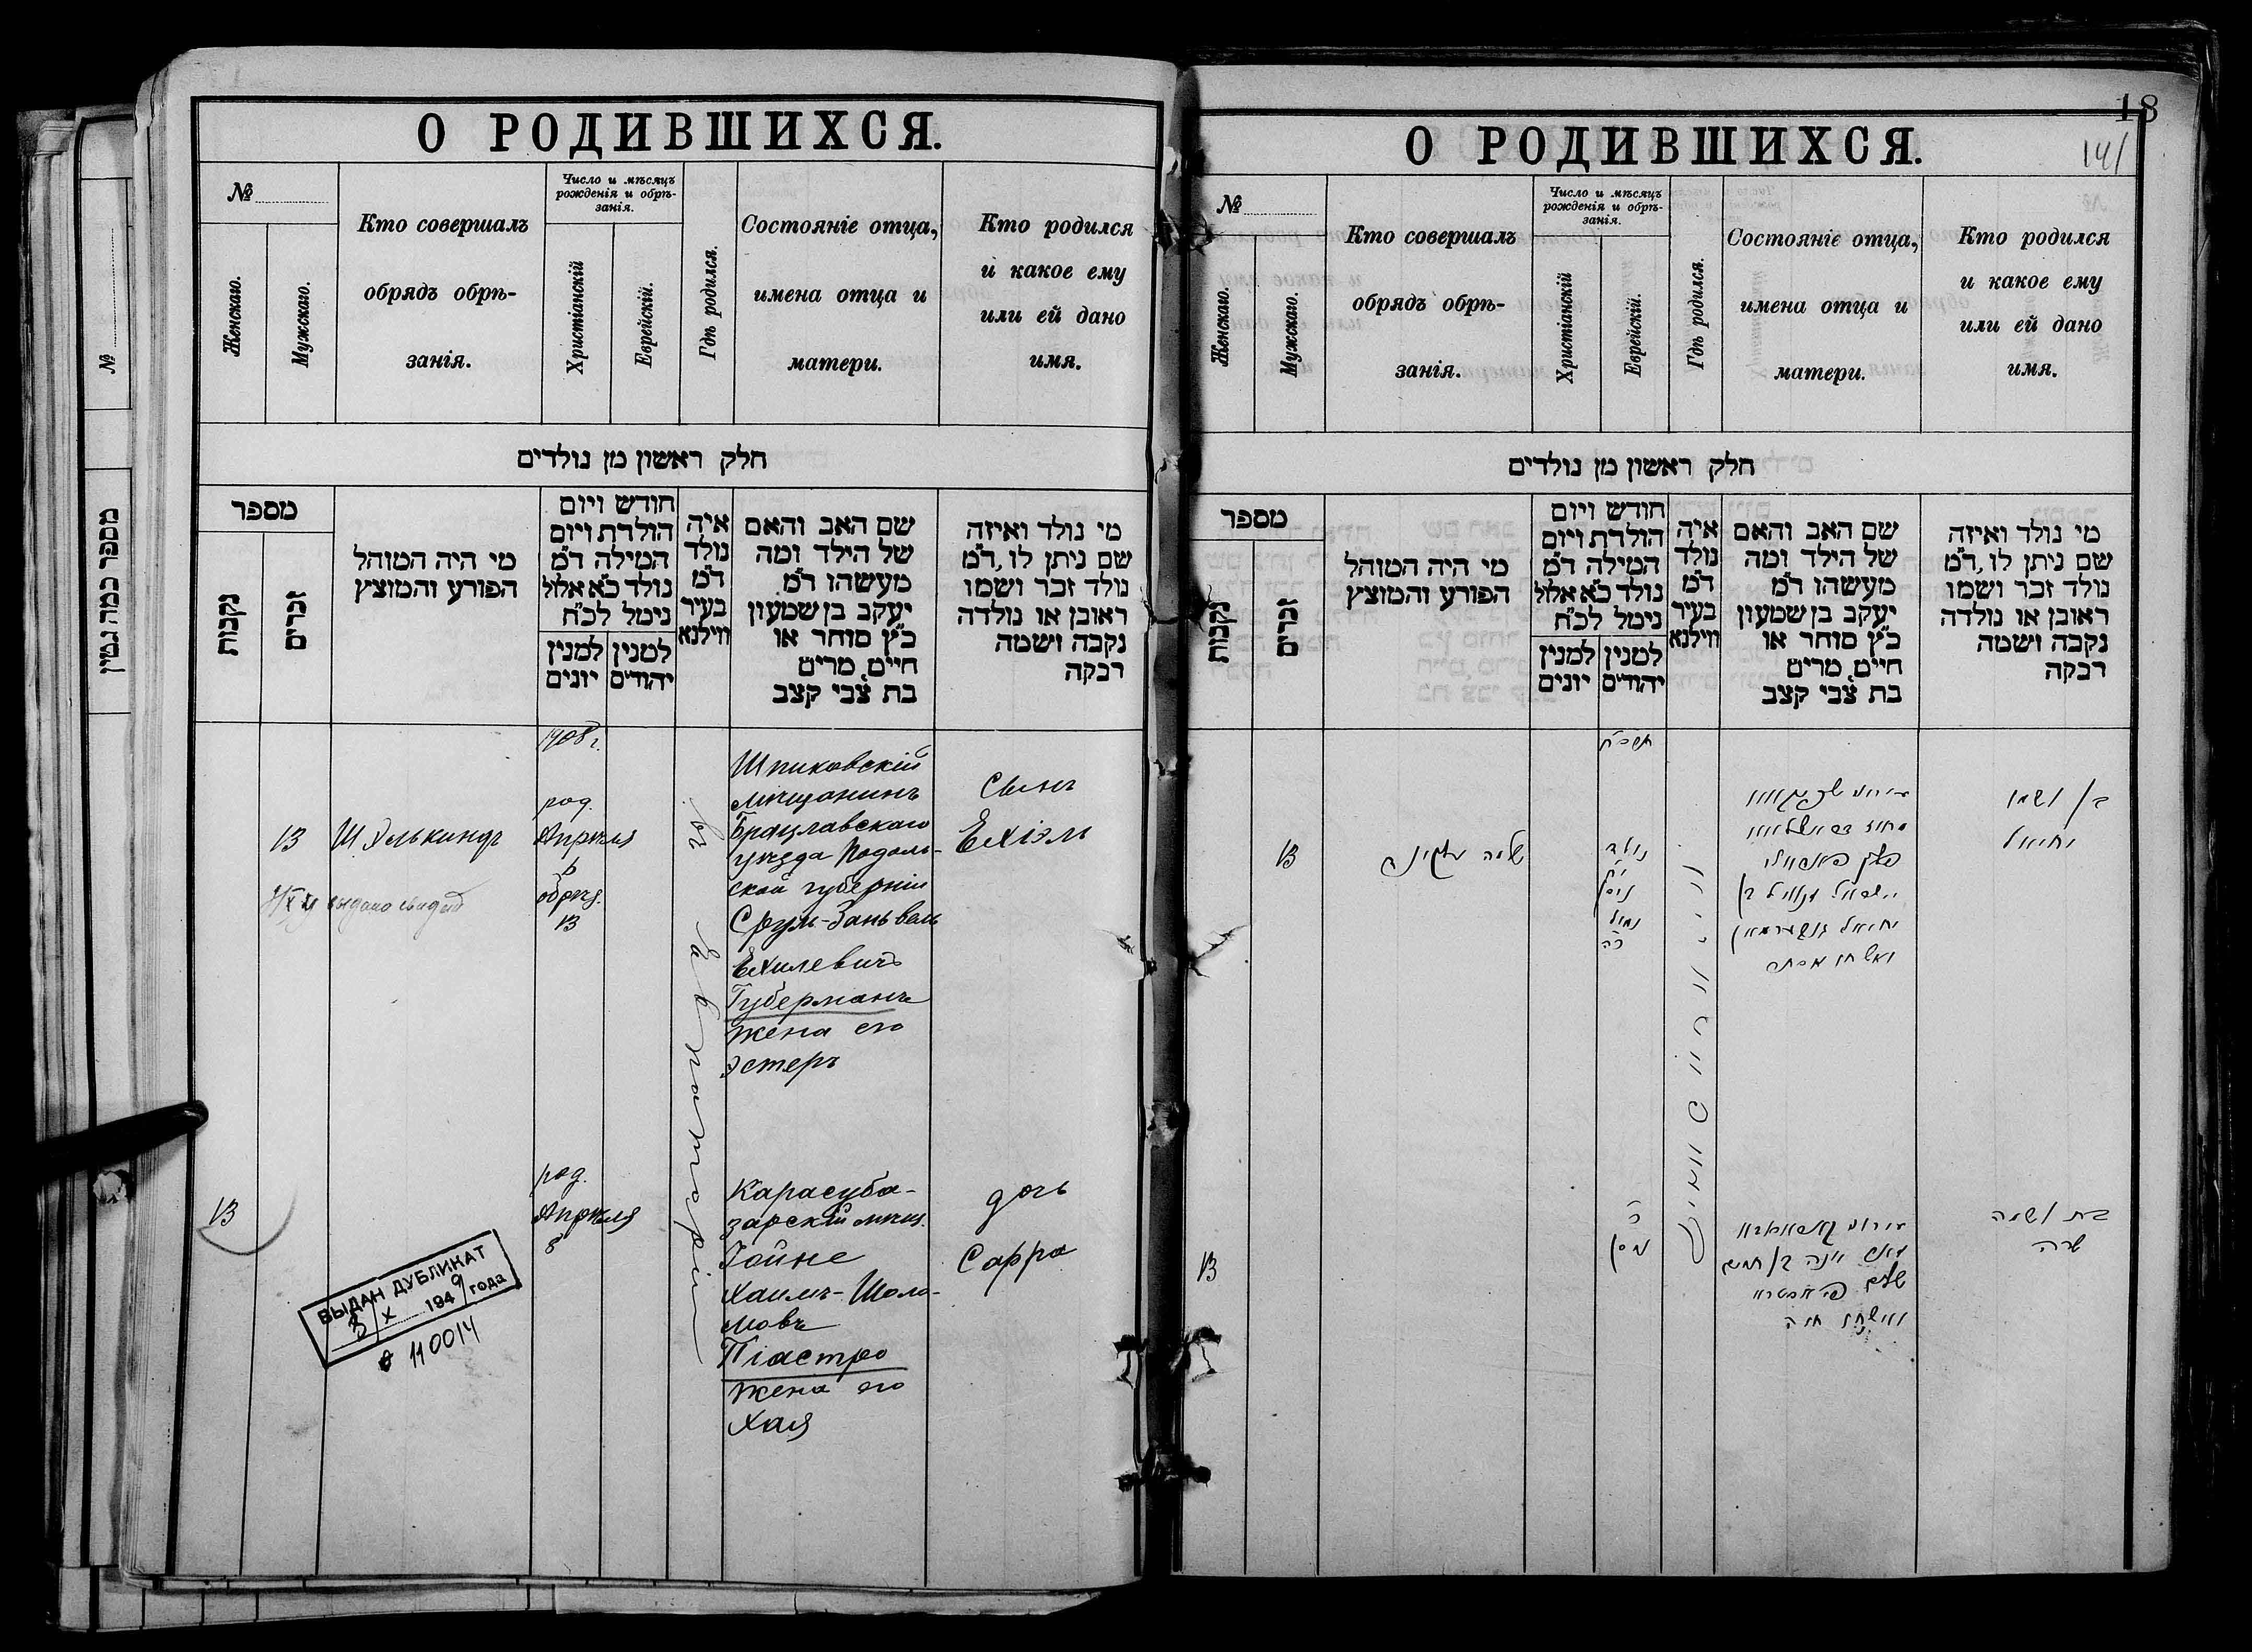 О РОДИВШИХСЯ.
№
Женскаго.
Мужскаго.
Кто совершалъ
обрядъ обрѣ-
занія.
Число и мѣсяцъ
рожденія и обрѣ-
занія.
Христіанскій
Еврейскій.
Гдѣ родился.
Состояніе отца,
имена отца и
матери.
Кто родился
и какое ему
или ей дано
имя.
חלק ראשון מן נולדים
מספר
נקבות
זכרים
מי היה המוהל
הפורע והמוצץ
חודש ויום
הולדת ויום
המילה ד"מ
נולד כ"א אלול
נימל לכ"ח
למנין יונים
למנין יהודים
איה
נולד
ד"מ
בעיר
ווילנא
שם האב והאם
של הילד ומה
מעשהו ד"מ
יעקב בן שמעון
כ"ץ סוחר או
חייט, מרים
בת צבי קצב
מי נולד ואיזה
שם ניתן לו, ד"מ
נולד זכר ושמו
ראובן או נולדה
נקבה ושמה
רבקה
1908 г.
13
Ш. Элькиндъ
род.
Апрѣля
6
обрѣз.
13
въ Евпаторіи
Шпиковскій
мѣщанинъ
Брацлавскаго
уѣзда Подоль-
ской губерніи
Срулъ-Заньвель
Ехилевичъ
Губерманъ
жена его
Эстеръ
Сынъ
Ехіэль
13
род.
Апрѣля
8
Карасуба-
зарскій мѣщ.
Іойне
Хаимъ-Шоло-
мовъ
Піастро
жена его
Хая
дочь
Сарра
ВЫДАН ДУБЛИКАТ
3/X 1949 года
110014
מספר כמה גטין
№
18
141
О РОДИВШИХСЯ.
№
Женскаго.
Мужскаго.
Кто совершалъ
обрядъ обрѣ-
занія.
Число и мѣсяцъ
рожденія и обрѣ-
занія.
Христіанскій
Еврейскій.
Гдѣ родился.
Состояніе отца,
имена отца и
матери.
Кто родился
и какое ему
или ей дано
имя.
חלק ראשון מן נולדים
מספר
נקבות
זכרים
מי היה המוהל
הפורע והמוצץ
חודש ויום
הולדת ויום
המילה ד"מ
נולד כ"א אלול
נימל לכ"ח
למנין יונים
למנין יהודים
איה
נולד
ד"מ
בעיר
ווילנא
שם האב והאם
של הילד ומה
מעשהו ד"מ
יעקב בן שמעון
כ"ץ סוחר או
חייט, מרים
בת צבי קצב
מי נולד ואיזה
שם ניתן לו, ד"מ
נולד זכר ושמו
ראובן או נולדה
נקבה ושמה
רבקה
תרס"ח
13
נולד
ניסן
נמול
בן ושמו
יחיאל
13
ניסן
בת ושמה
שרה